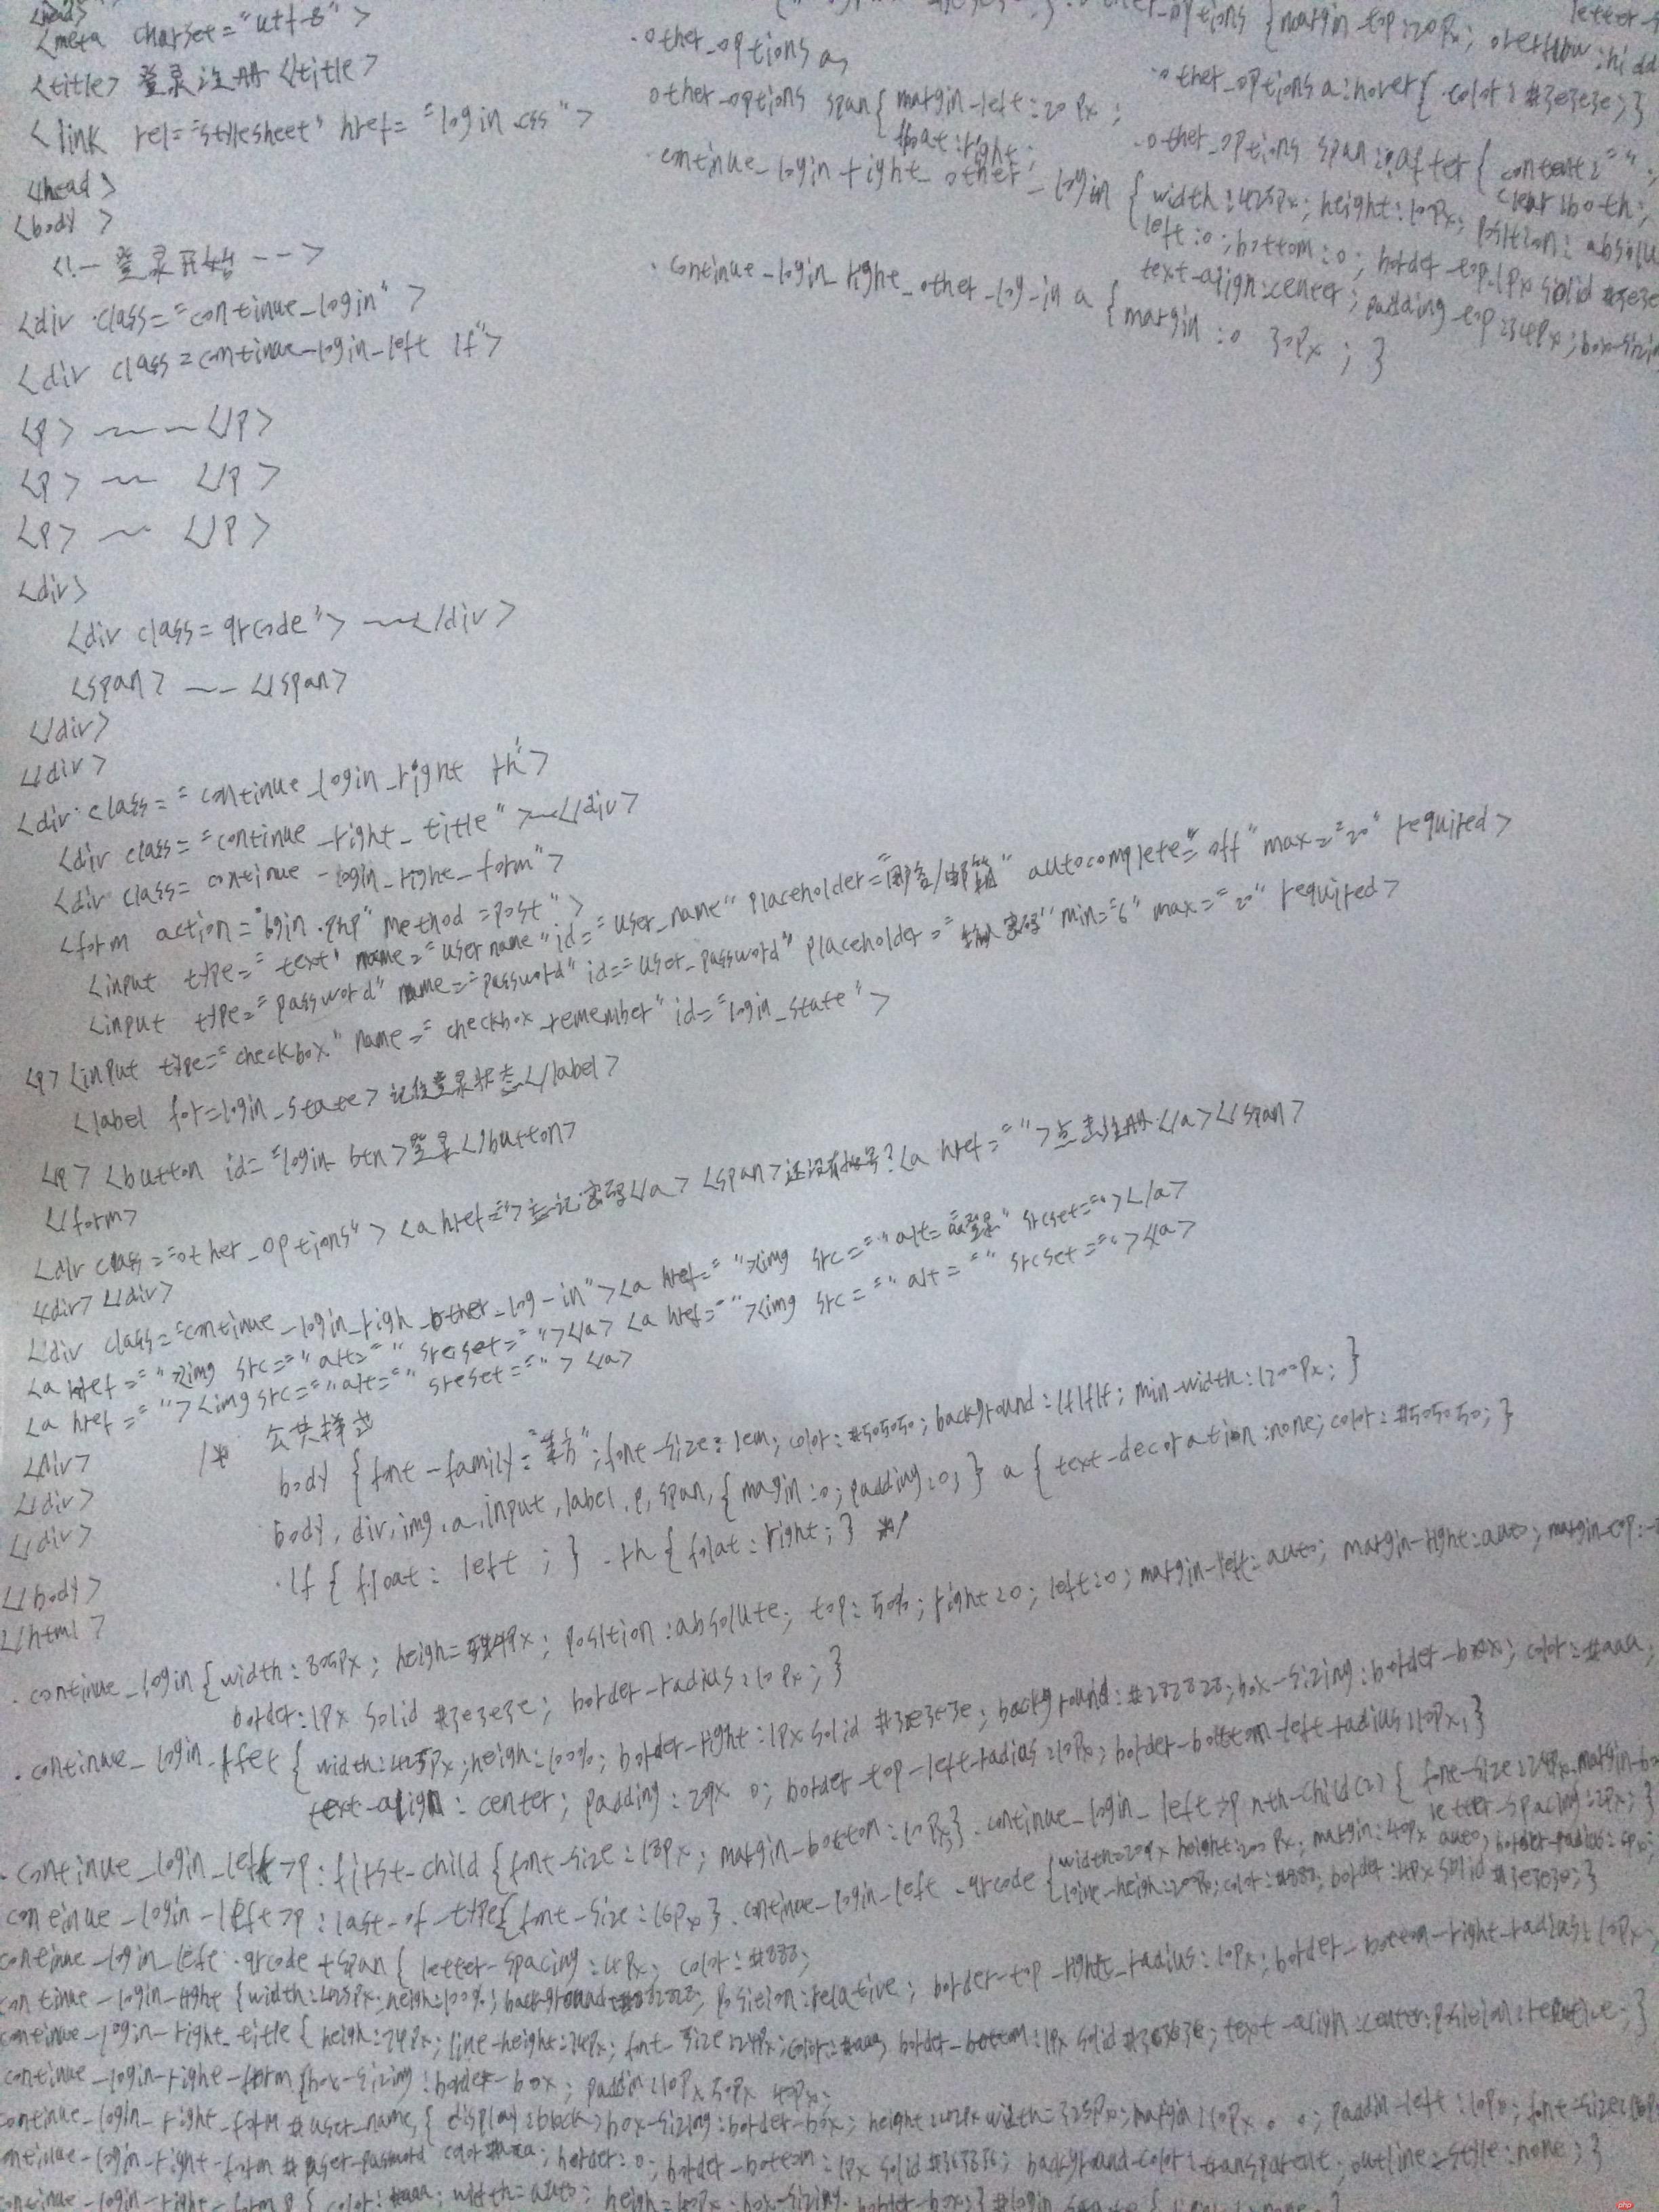 <head>
<meta charset="utf-8">
<title>登录注册</title>
<link rel="stylesheet" href="login.css">
</head>
<body>
<!-- 登录开始 -->
<div class="continue_login">
<div class=continue-login-left lf">
<p> </p>
<p> </p>
<p> </p>
<div>
<div class=qrcode"> </div>
<span> </span>
</div>
</div>
<div class="continue_login_right rh">
<div class="continue_right_title"> </div>
<div class=continue-login_right_form">
<form action="login.php" method=post">
<input type="text" name="username" id="user_name" placeholder="邮箱" autocomplete="off" max="20" required>
<input type="password" name="password" id="user_password" placeholder="输入密码" min="6" max="20" required>
<p><input type="checkbox" name="checkbox_remember" id="login_state">
<label for=login_state>记住登录状态</label>
</p> <button id="login_btn>登录</button>
</form>
<div class="other_options"> <a href="">忘记密码</a> <span>还没有帐号?<a href="">点击注册</a></span>
</div></div>
<div class="continue_login_righ_other_log-in"><a href=""><img src="" alt= 登录" srcset=""></a>
<a href=""><img src="" alt="" srcset=""></a> <a href=""><img src="" alt="" srcset=""></a>
<a href=""><img src="" alt="" srcset=""></a>
</div>
</div>
</div>
</body>
</html>
/* 公共样式
body { font-family= ;font-size:1em; color:#505050; background:1f1f1f; min-width:1200px; }
body, div, img, a, input, label, p, span, { margin:0; padding:0; } a { text-decoration:none; color:#505050; }
.lf { float: left ; } .rh { folat: right; } */
.continue_login { width:805px; heigh= px; position:absolute; top:50%; right:0; left:0; margin-left:auto; margin-right:auto; margin-top:-
border:1px solid #3e3e3e; border-radius:10px; }
.continue_login_lfet { width:425px; heigh:100%; border-right:1px solid #3e3e3e; background:#282828; box-sizing:border-box; color:#aaa;
text-align:center; padding:29px 0; border-top-left-radius:10px; border-bottom-left-radius:10px; }
.continue_login_left>p:first-child { font-size:18px; margin_bottom:10px; } .continue_login_left>p nth-child(2) { font-size:24px margin-bo
letter-spacing:2px; }
continue_login-left>p:last-of-type{ font-size:16px } .continue_login_left .qrcode { width=200px height:200px; margin:40px auto; border-radius: px;
line-height:200px; color:#888; border:4px solid #3e3e3e; }
continue_login_left .qrcode +span { letter-spacing:4px; color:#888;
continue_login-right { width:425px; heigh:100%; background:#282828; position:relative; border-top-right_radius:10px; border-bottom-right_radius:10px;
continue_login-right_title { height:74px; line-height:74px; font-size:24px; color:#aaa; border-bottom:1px solid #3e3e3e; text-align:center; position:relative; }
continue_login-right-form { box-sizing:border-box; paddin:10px 50px 40px;
continue_login_right_form #user_name, { display:block; box-sizing:border-box; height:42px width=325px; margin:10px 0 0; paddin-left:10px; font-size:16px
continue_login-right-form #user-password color #aaa; border:0; border-bottom:1px solid #3e3e3e; background-color:transparent; outline-style:none; }
continue_login-right_form p { color:#aaa; width=auto; heigh=40px; box-sizing:border-box; }
other_options { margin-top:20px; overflow:hidd
letter-s
.other_options a,
other_options span{ margin-left:20px;
float:right;
.other_options a:hover{ color:#3e3e3e; }
.other_options span::after { content:"";
clear:both;
.continue_login_right_other_login { width:425px; height:100px; position:absolu
left:0; bottom:0; border-top:1px solid #3e3e
text-align:center; padding-top:34px; box-sizin
.continue_login_right_other_log-in a { margin:0 30px; }
php